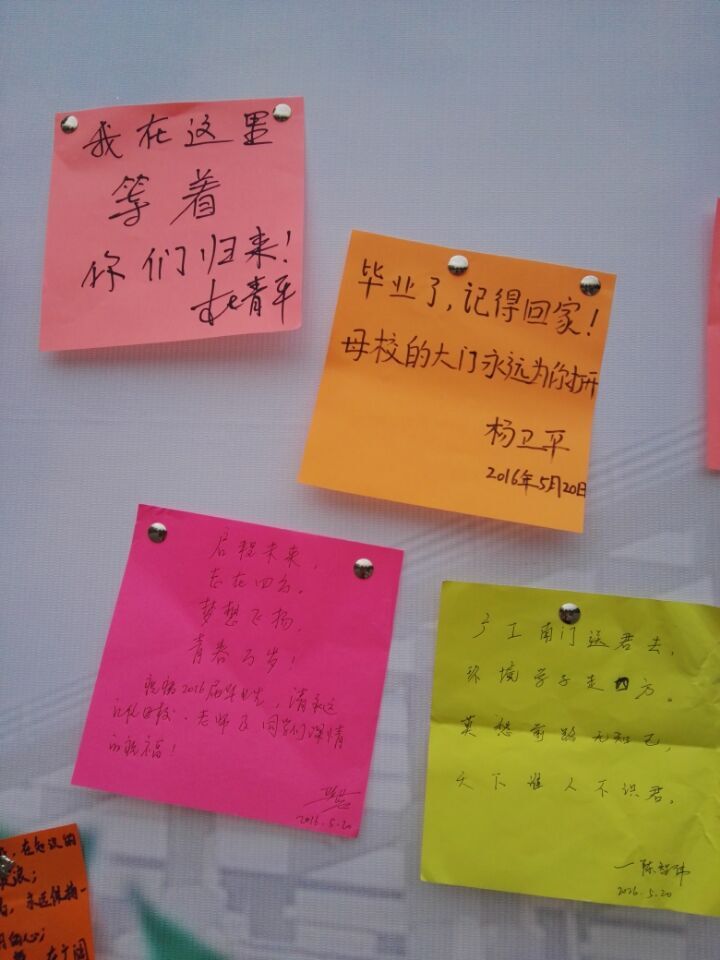 我在这里
等着
你们归来!
杜青平
毕业了,记得回家!
母校的大门永远为你打开
杨卫平
2016年5月20日
启程未来,
志在四方。
梦想飞扬
青春万岁!
祝福2016届毕业生,请永远
记住母校、老师及同学们深情
的祝福!
2016.5.20
广工南门送君去,
环境学子走四方。
莫愁前路无知己,
天下谁人不识君。
—陈
2016.5.20
,在
永远保持一